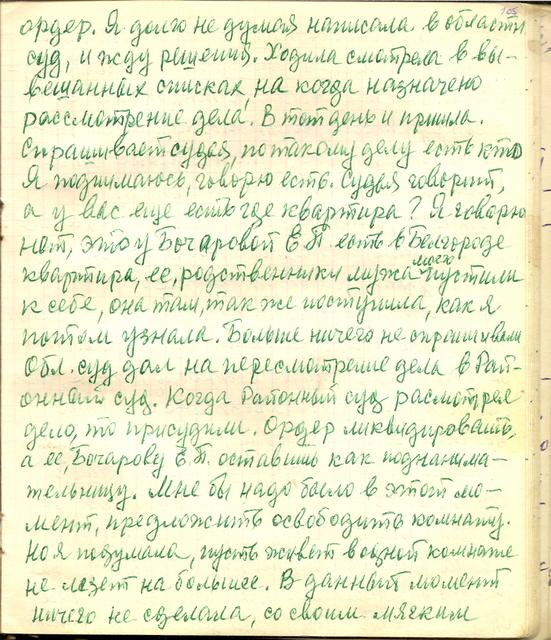 105
ордер. Я долго не думая написала в областн
суд, и жду решения. Ходила смотрела в вы-
вешанных списках, на когда назначено
рассмотрение дела. В тот день и пришла.
Спрашивает судья, по такому делу есть кто
Я поднимаюсь, говорю есть. Судья говорит,
а у вас еще есть где квартира? Я говорю
нет, это у Бочаровой Е.П. есть в Белгороде
квартира, ее, родственники мужа моего пустили
к себе, она там, так же поступила, как я
потом узнала. Больше ничего не спрашивали
Обл. суд дал на пересмотрение дела в Рай-
онный суд. Когда Районный суд расмотрел
дело, то присудили. Ордер ликвидировать,
а ее, Бочарову Е.П. оставить как поднанима-
тельницу. Мне бы надо было в этот мо-
мент, предложить освободить комнату.
Но я подумала, пусть живет в одной комнате
не лезет на большее. В данный момент
ничего не сделала, со своим мягким